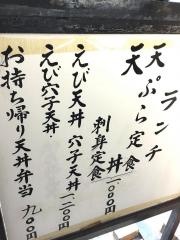 ランチ
天ぷら定食
天丼
刺身定食 一000円
えび天丼 穴子天丼 一、二00円
えび穴子天丼
お持ち帰り天丼弁当 九00円